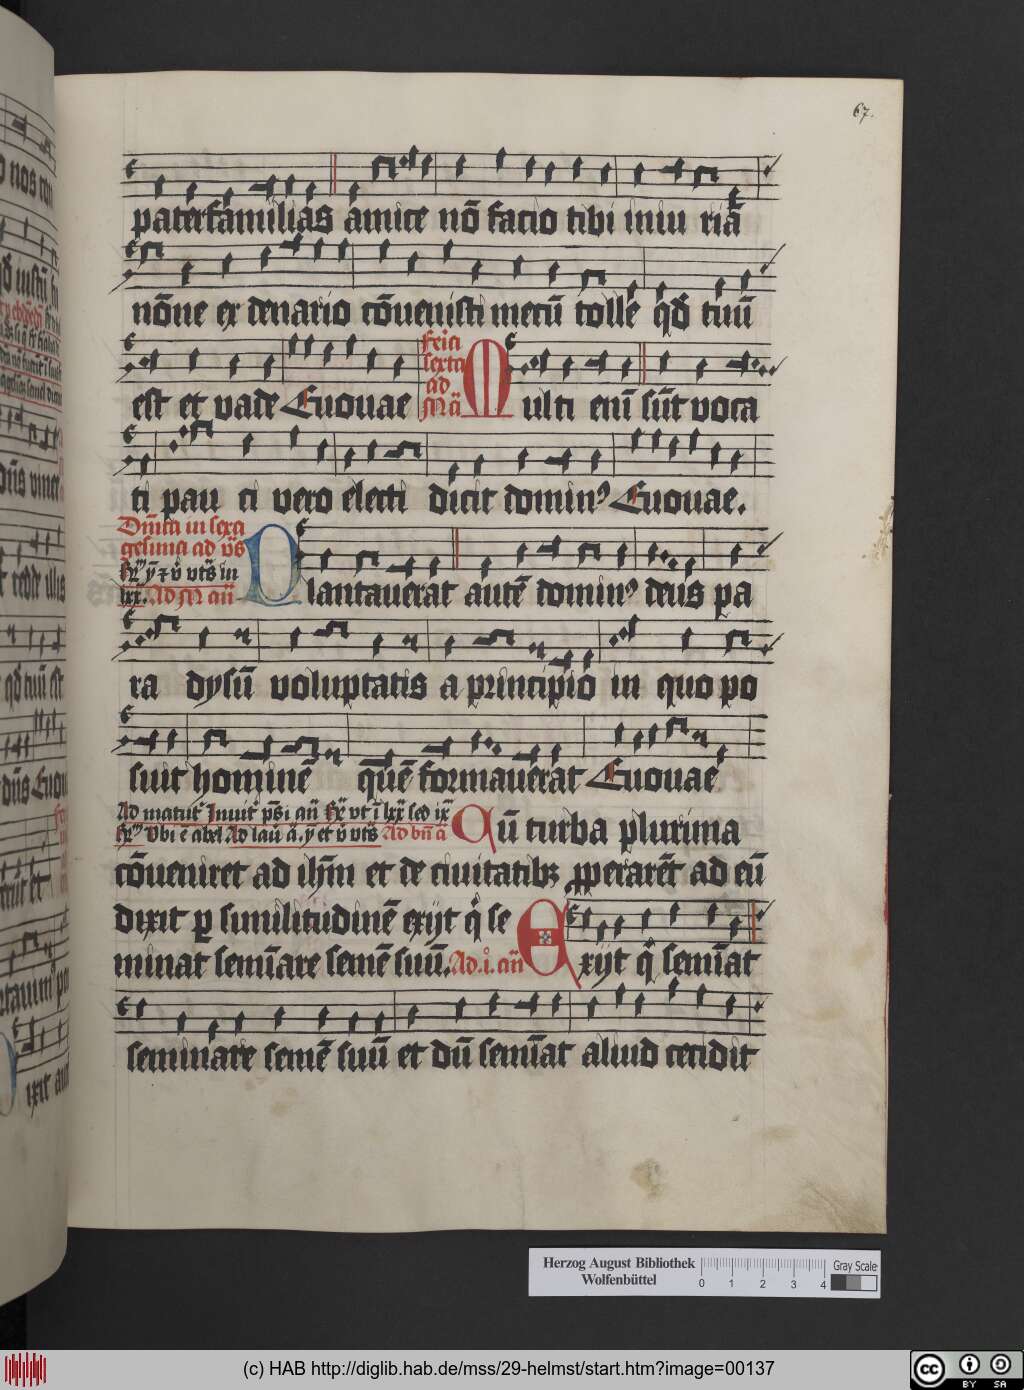 67.
paterfamilias amice nō facio tibi iniu riā
nōne ex denario cōuenisti mecū tolle qđ tuū
est et vade Euouae
Feria
sexta
ad
Mā
Multi enī sūt voca
ti pau ci vero electi dicit domin⁹ Euouae.
Dn̄ica in sexa
gesima ad
Ad M an̄
Plantauerat autē domin⁹ deus pa
ra dysū voluptatis a principio in quo po
suit hominē quē formauerat Euouae
Cū turba plurima
cōueniret ad ih̄m et de ciuitatibꝫ ꝓperarēt ad eū
dixit ꝑ similitudinē exijt q̇ se
minat semīare semē suū. Ad .i. an̄ Exijt q̇ semīat
seminare semē suū et dū semīat aliud cecidit
Herzog August Bibliothek
Wolfenbüttel
0 1 2 3 4
Gray Scale
(c) HAB http://diglib.hab.de/mss/29-helmst/start.htm?image=00137
cc BY SA